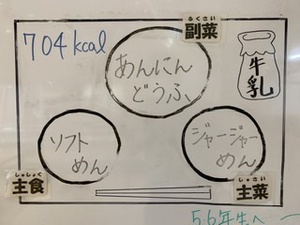 704kcal
ふくさい
副菜
あんにん
どうふ
牛乳
ソフト
めん
ジャージャー
めん
しゅしょく
主食
しゅさい
主菜
5.6年生へ